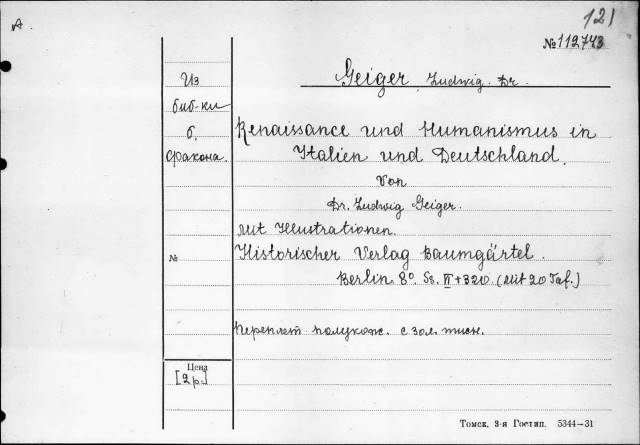 A.
121
№ 112743
Geiger, Ludwig. Dr.
Из
биб-ки
б.
Фракона.
Renaissance und Humanismus in
Italien und Deutschland.
Von
Dr. Ludwig Geiger.
Mit Illustrationen.
№
Historischer Verlag Baumgärtel.
Berlin. 8°. Ss. II+320. (Mit 20 Taf.)
Переплет полукож. с зол. тисн.
Цена
[2р.]
Томск, 3-я Гостип. 5344—31